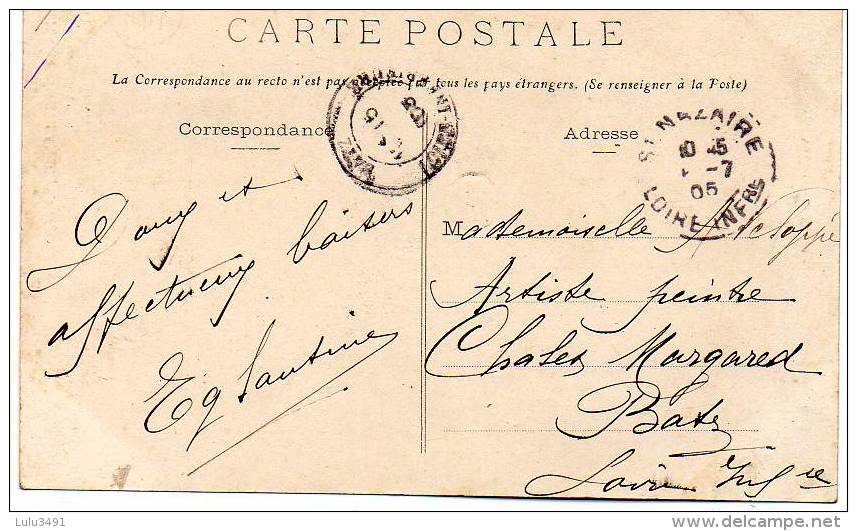 CARTE POSTALE
La Correspondance au recto n'est pas acceptée par tous les pays étrangers. (Se renseigner à la Poste)
Correspondance
Doux et
affectueux baisers
Eglantine
Adresse
ST NAZAIRE
10 45
-7
05
LOIRE INFRE
Mademoiselle
Artiste peintre
Chalet Margared
Batz
Loire Infre
Lulu3491
delcampe.net